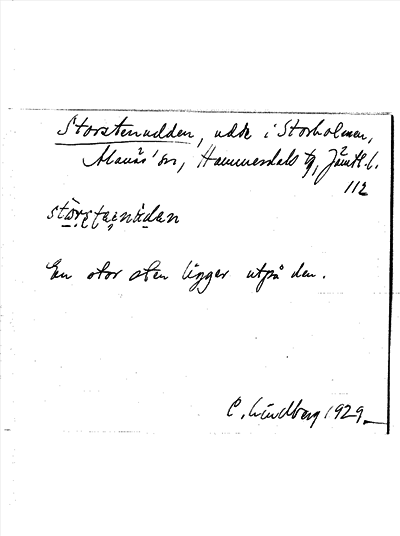 Storstenudden, udde i Storholmen,
Alanäs sn, Hammerdals tg, Jämtl. l.
112
störstainùdan
En stor sten ligger utpå den.
C. Lindberg 1929.